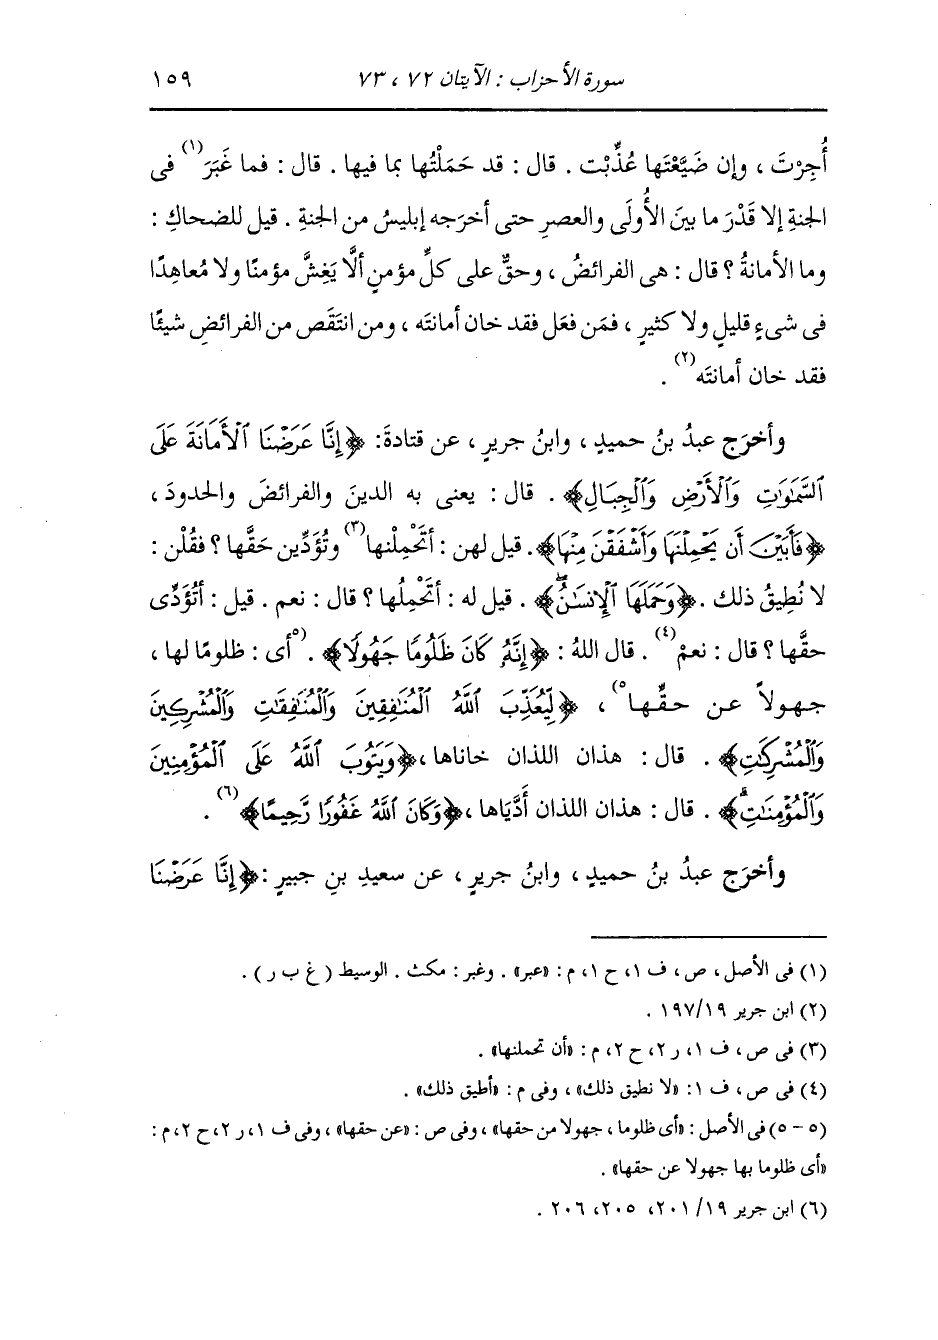 سورة الأحزاب : الآيتان ٧٢ ، ٧٣ ١٥٩
أُجِرْتَ ، وإن ضَيَّعْتَها عُذِّبْت . قال : قد حَمَلْتُها بما فيها . قال : فما غَبَرَ(١) فى
الجنةِ إلا قَدْرَ ما بينَ الأُولَى والعصرِ حتى أخرَجه إبليسُ من الجنةِ . قيل للضحاكِ :
وما الأمانةُ ؟ قال : هى الفرائضُ ، وحقٌّ على كلِّ مؤمنٍ ألَّا يَغِشَّ مؤمنًا ولا مُعاهِدًا
فى شىءٍ قليلٍ ولا كثيرٍ ، فمَن فعَل فقد خان أمانتَه ، ومن انتَقَص من الفرائضِ شيئًا
فقد خان أمانتَه(٢) .
وأخرَج عبدُ بنُ حميدٍ ، وابنُ جريرٍ ، عن قتادةَ: ﴿إِنَّا عَرَضْنَا ٱلْأَمَانَةَ عَلَى
ٱلسَّمَٰوَٰتِ وَٱلْأَرْضِ وَٱلْجِبَالِ﴾ . قال : يعنى به الدينَ والفرائضَ والحدودَ ،
﴿فَأَبَيْنَ أَن يَحْمِلْنَهَا وَأَشْفَقْنَ مِنْهَا﴾. قيل لهن : أتَحْمِلْنها(٣) وتُؤَدِّين حَقَّها ؟ فقُلْن :
لا نُطِيقُ ذلك . ﴿وَحَمَلَهَا ٱلْإِنسَٰنُۖ﴾ . قيل له : أتَحْمِلُها ؟ قال : نعم . قيل : أتُؤَدِّى
حقَّها ؟ قال : نعمْ(٤) . قال اللهُ : ﴿إِنَّهُ كَانَ ظَلُومًا جَهُولًا﴾ . (٥أى : ظلومًا لها ،
جهولاً عن حقِّها٥) ، ﴿لِّيُعَذِّبَ ٱللَّهُ ٱلْمُنَٰفِقِينَ وَٱلْمُنَٰفِقَٰتِ وَٱلْمُشْرِكِينَ
وَٱلْمُشْرِكَٰتِ﴾ . قال : هذان اللذان خاناها ، ﴿وَيَتُوبَ ٱللَّهُ عَلَى ٱلْمُؤْمِنِينَ
وَٱلْمُؤْمِنَٰتِۗ﴾ . قال : هذان اللذان أَدَّيَاها ، ﴿وَكَانَ ٱللَّهُ غَفُورًا رَّحِيمًا﴾(٦) .
وأخرَج عبدُ بنُ حميدٍ ، وابنُ جريرٍ ، عن سعيدِ بنِ جبيرٍ : ﴿إِنَّا عَرَضْنَا
(١) فى الأصل ، ص ، ف ١ ، ح ١ ، م : «عبر» . وغبر : مكث . الوسيط ( غ ب ر ) .
(٢) ابن جرير ١٩/ ١٩٧ .
(٣) فى ص ، ف ١ ، ر ٢ ، ح ٢ ، م : «أن تحملنها» .
(٤) فى ص ، ف ١ : «لا نطيق ذلك» ، وفى م : «أطيق ذلك» .
(٥ - ٥) فى الأصل : «أى ظلوما ، جهولا من حقها» ، وفى ص : «عن حقها» ، وفى ف ١ ، ر ٢ ، ح ٢ ، م :
«أى ظلوما بها جهولا عن حقها» .
(٦) ابن جرير ١٩/ ٢٠١ ، ٢٠٥ ، ٢٠٦ .